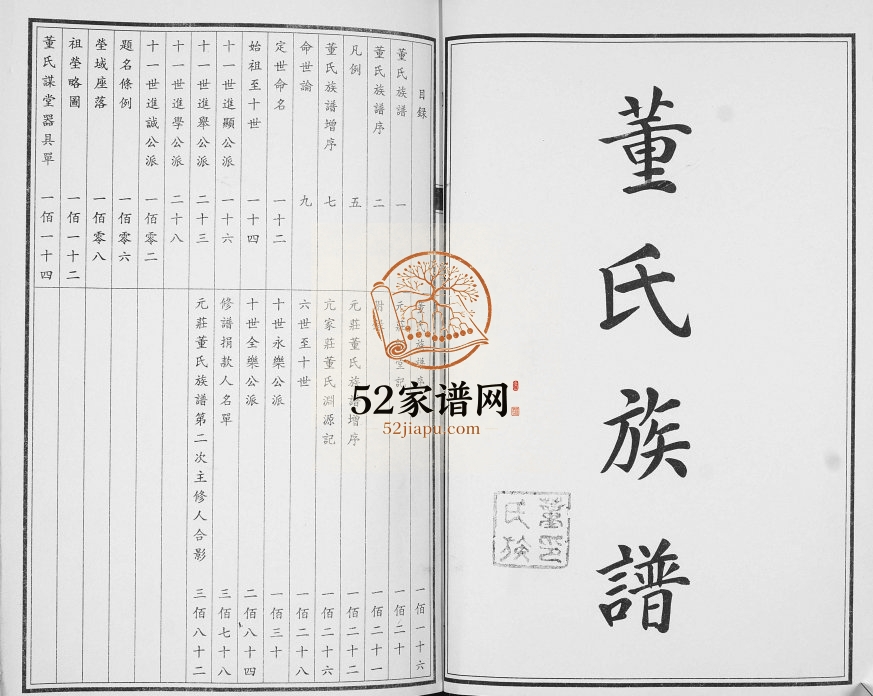 董氏族譜
目録
董氏族譜 一
董氏族譜序 二
凡例 五
董氏族譜增序 七
命世論 九
定世命名 一十二
始祖至十世 一十四
十一世進顯公派 一十六
十一世進舉公派 二十三
十一世進學公派 二十八
十一世進誠公派 一佰零二
題名條例 一佰零六
塋域座落 一佰零八
祖塋略圖 一佰一十二
董氏諜堂器具單 一佰一十四
董氏族譜序 一佰一十六
元莊 堂記 一佰二十
一佰二十一
元莊董氏族譜增序 一佰二十二
亢家莊董氏淵源記 一佰二十六
六世至十世 一佰二十八
十世永樂公派 一佰三十
十世全樂公派 二佰八十四
修譜捐款人名單 三佰七十八
元莊董氏族譜第二次主修人合影 三佰八十二
52家谱网
52jiapu.com